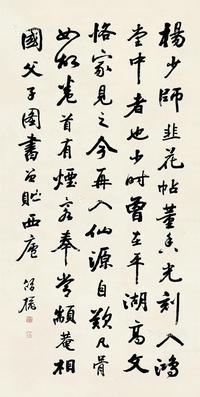 楊少師韭花帖董香光刻入鴻
堂中者也少時曾在平湖高文
恪家見之今再入仙源自歎凡骨
如故卷首有煙客奉常顓菴相
國父子圖書西廬